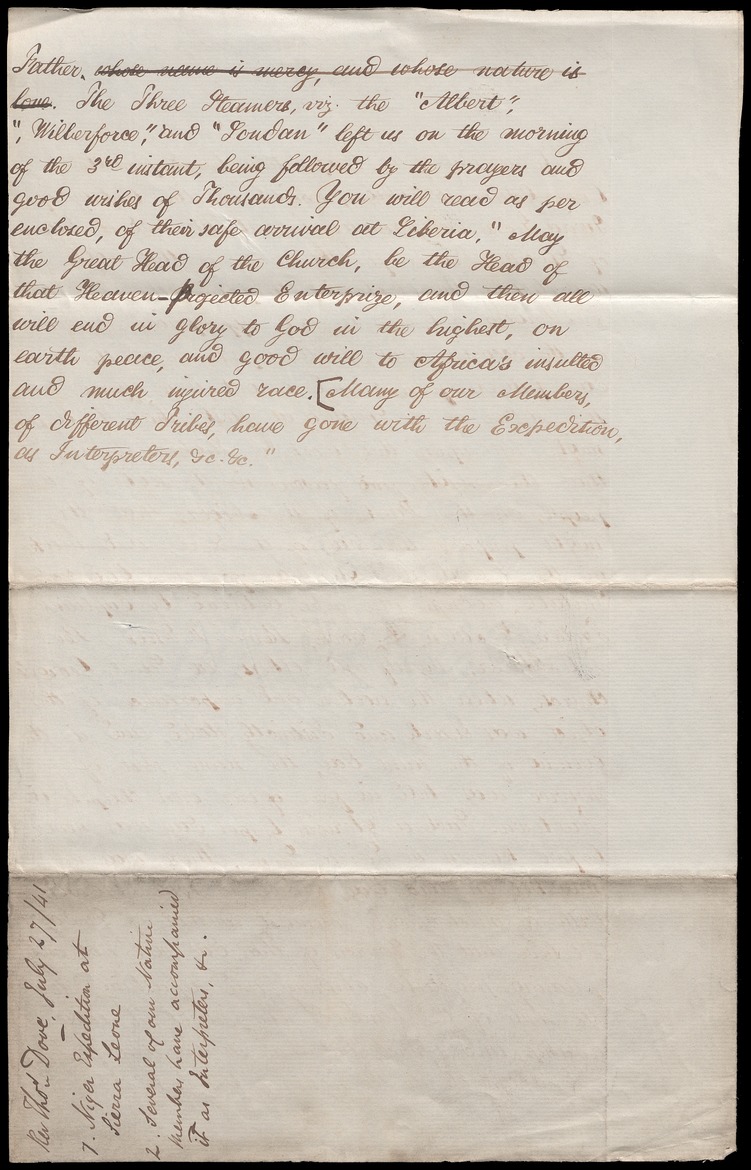 Father. whose name is mercy, and whose nature is
love. The Three Steamers, viz. the "Albert",
", Wilberforce," and "Soudan" left us on the morning
of the 3rd instant, being followed by the prayers and
good wishes of Thousands. You will read as per
enclosed, of their safe arrival at Liberia." May
the Great Head of the Church, be the Head of
that Heaven-projected Enterprize, and then all
will end in glory to God in the highest, on
earth peace, and good will to Africa's insulted
and much injured race. [Many of our Members,
of different Tribes, have gone with the Expedition,
as Interpreters, &c. &c. "
Rev Thos. Dove, July 27/41
1. Niger Expedition at
Sierra Leone
2. Several of our Native
Members have accompanied
it as Interpreters, &c.